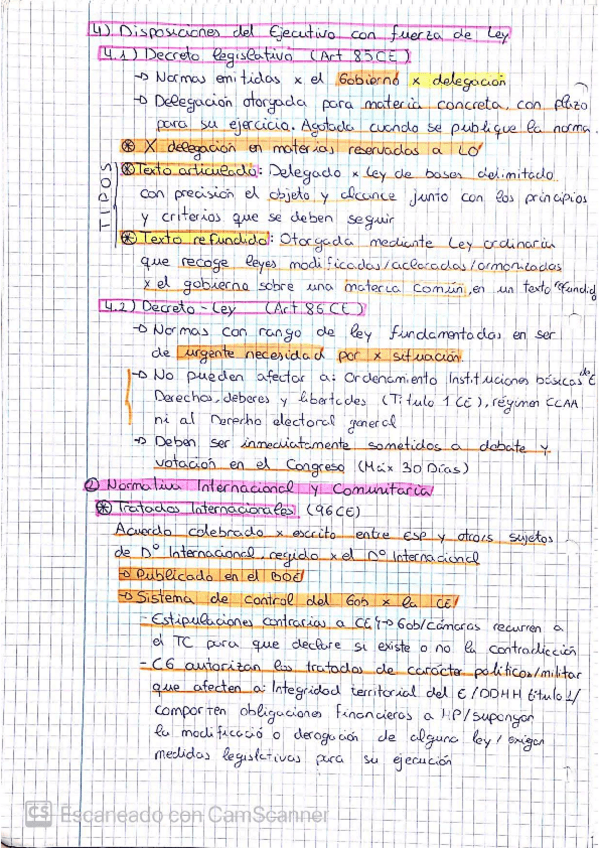 4) Disposiciones del Ejecutivo con fuerza de Ley
4.1) Decreto legislativo (Art 85 CE)
→ Normas emitidas x el Gobierno x delegación
→ Delegación otorgada para materia concreta, con plazo
para su ejercicio. Agotada cuando se publique la norma.
⊛ X delegación en materias reservadas a LO
TIPOS
⊛ Texto articulado: Delegado x ley de bases delimitado
con precisión el objeto y alcance junto con los principios
y criterios que se deben seguir
⊛ Texto refundido: Otorgada mediante Ley ordinaria
que recoge leyes modificadas/aclaradas/armonizadas
x el gobierno sobre una materia común, en un texto refundido
4.2) Decreto-Ley (Art 86 CE)
→ Normas con rango de ley fundamentadas en ser
de urgente necesidad por x situación.
→ No pueden afectar a: Ordenamiento Instituciones básicas de E
Derechos, deberes y libertades (Título 1 CE), régimen CCAA
ni al Derecho electoral general
→ Deben ser inmediatamente sometidos a debate y
votación en el Congreso (Máx 30 Días)
② Normativa Internacional y Comunitaria
⊛ Tratados Internacionales (96 CE)
Acuerdo celebrado x escrito entre ESP y otro/s sujetos
de Dº Internacional, regido x el Dº Internacional
→ Publicado en el BOE
→ Sistema de control del Gob x la CE
- Estipulaciones contrarias a CE → Gob/Cámaras recurren a
el TC para que declare si existe o no la contradicción
- CG autorizan los tratados de carácter político/militar
que afecten a: Integridad territorial del E/DDHH título 1/
comporten obligaciones financieras a HP/supongan
la modificació o derogación de alguna ley/exigan
medidas legislativas para su ejecución
CS Escaneado con CamScanner